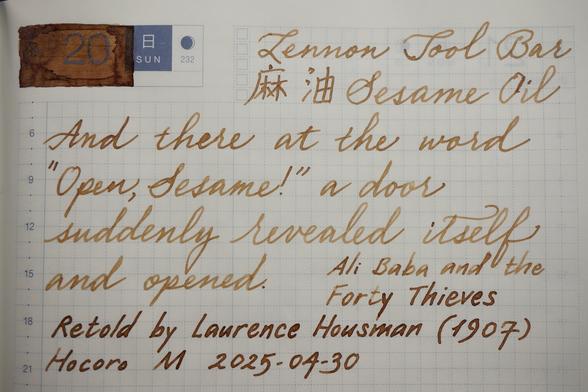 20 日 SUN 232
Lennon Tool Bar
麻油 Sesame Oil
And there at the word
"Open, Sesame!" a door
suddenly revealed itself
and opened.
Ali Baba and the
Forty Thieves
Retold by Laurence Housman (1907)
Hocoro M 2025-04-30
6
9
12
15
18
21